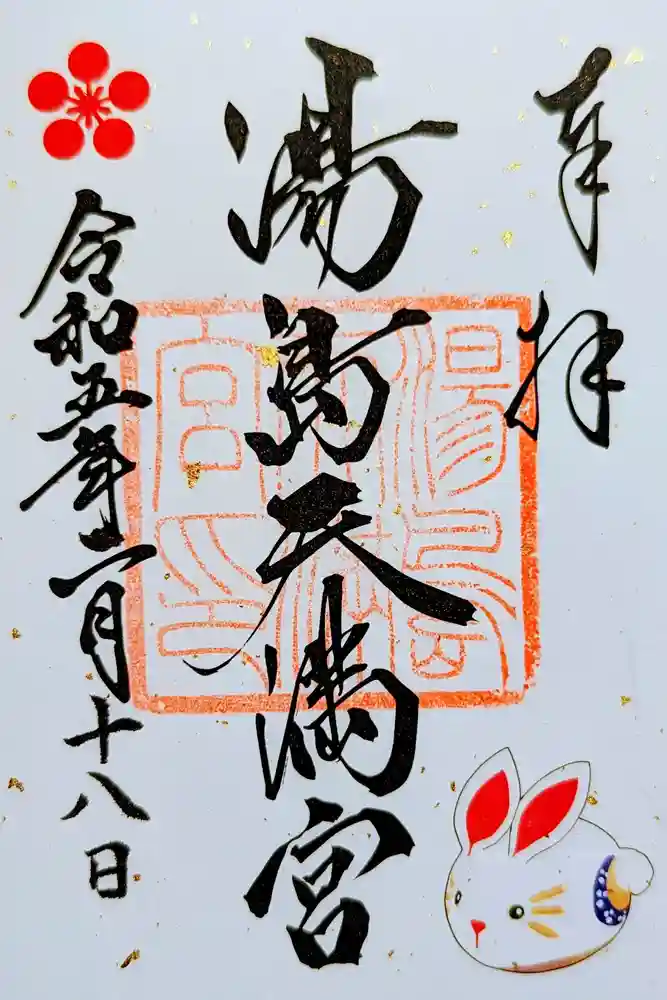 奉拝
湯島天満宮
令和五年二月十八日